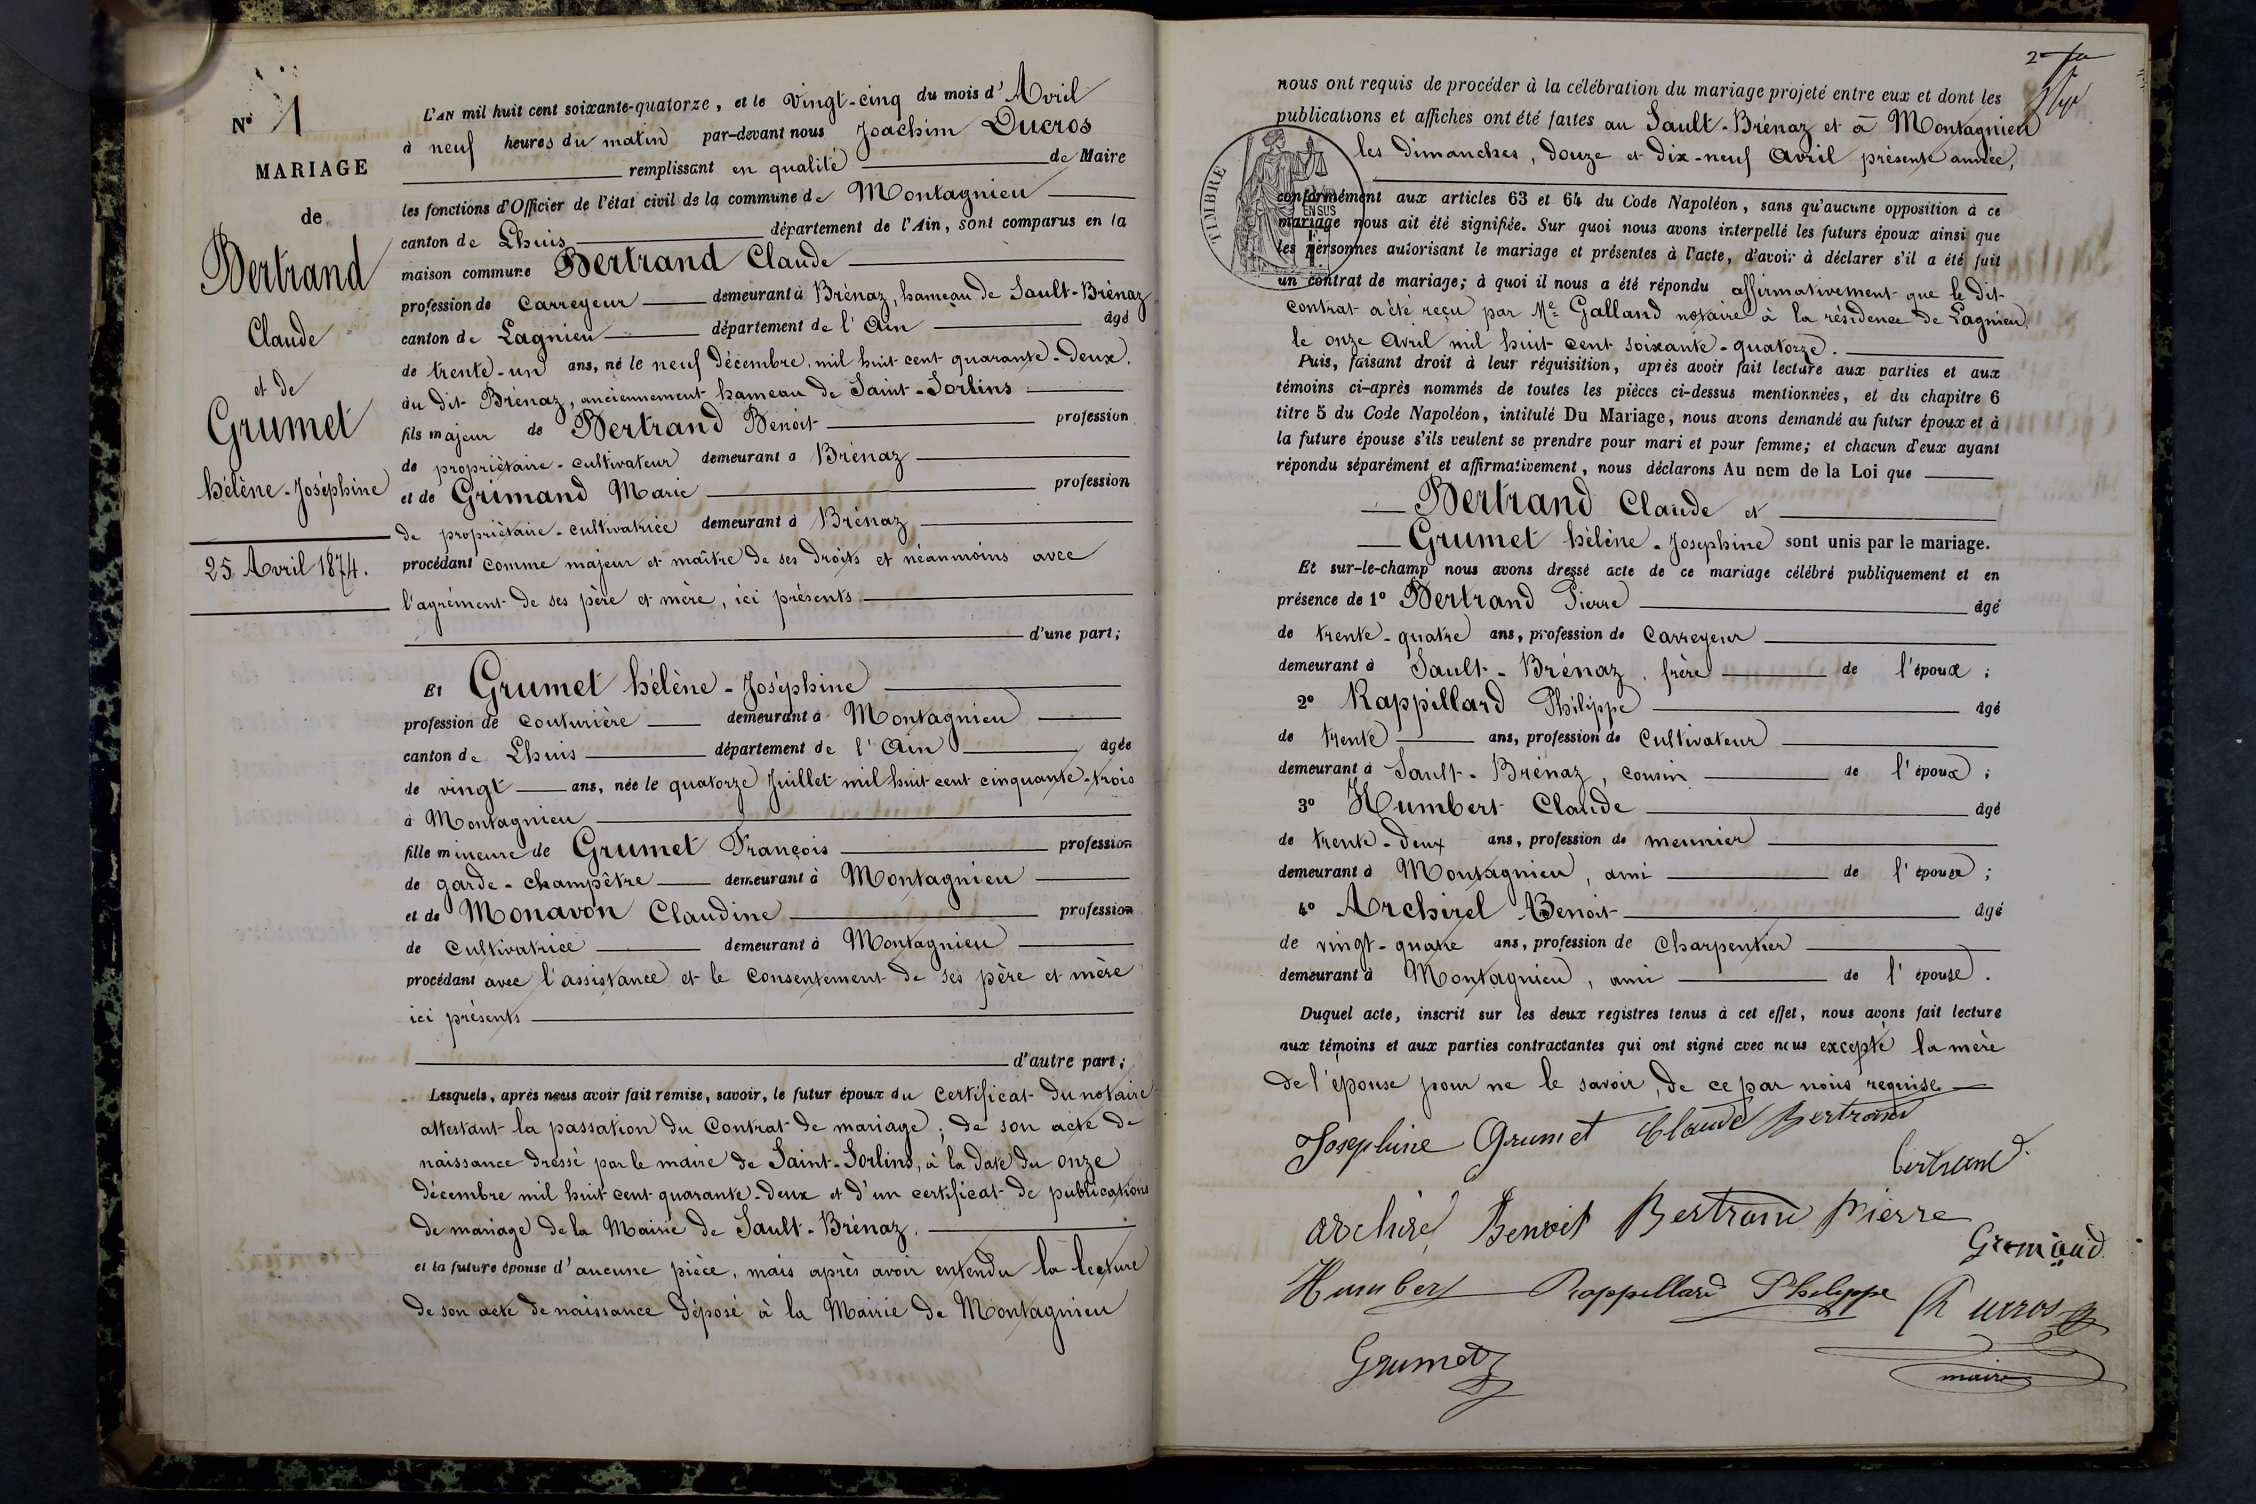 N° 1
MARIAGE
de
Bertrand
Claude
et de
Grumet
hélène-Joséphine
25 Avril 1874.
L'AN mil huit cent soixante-quatorze, et le vingt-cinq du mois d'Avril
à neuf heures du matin par-devant nous Joachim Ducros
remplissant en qualité de Maire
les fonctions d'Officier de l'état civil de la commune de Montagnieu
canton de Lhuis département de l'Ain, sont comparus en la
maison commune Bertrand Claude
profession de Carreyeur demeurant à Brénaz, hameau de Sault-Brénaz
canton de Lagnieu département de l'Ain âgé
de trente-un ans, né le neuf décembre, mil huit cent quarante-deux,
au dit Brénaz, anciennement hameau de Saint-Sorlins
fils majeur de Bertrand Benoit profession
de propriétaire-cultivateur demeurant à Brénaz
et de Grimand Marie profession
de propriétaire-cultivatrice demeurant à Brénaz
procédant comme majeur et maître de ses droits et néanmoins avec
l'agrément de ses père et mère, ici présents
d'une part;
Et Grumet hélène-Joséphine
profession de couturière demeurant à Montagnieu
canton de Lhuis département de l'Ain âgée
de vingt ans, née le quatorze Juillet mil huit cent cinquante-trois
à Montagnieu
fille mineure de Grumet François profession
de garde-champêtre demeurant à Montagnieu
et de Monavon Claudine profession
de cultivatrice demeurant à Montagnieu
procédant avec l'assistance et le consentement de ses père et mère
ici présents
d'autre part;
Lesquels, après nous avoir fait remise, savoir, le futur époux du certificat du notaire
attestant la passation du Contrat de mariage; de son acte de
naissance dressé par le maire de Saint-Sorlins, à la date du onze
décembre mil huit cent quarante-deux et d'un certificat de publications
de mariage de la Mairie de Sault-Brénaz.
et la future épouse d'aucune pièce, mais après avoir entendu la lecture
de son acte de naissance déposé à la Mairie de Montagnieu
2
nous ont requis de procéder à la célébration du mariage projeté entre eux et dont les
publications et affiches ont été faites au Sault-Brénaz et à Montagnieu
les dimanches, douze et dix-neuf Avril présente année,
TIMBRE
EN SUS
conformément aux articles 63 et 64 du Code Napoléon, sans qu'aucune opposition à ce
mariage nous ait été signifiée. Sur quoi nous avons interpellé les futurs époux ainsi que
les personnes autorisant le mariage et présentes à l'acte, d'avoir à déclarer s'il a été fait
un contrat de mariage; à quoi il nous a été répondu affirmativement que le dit
contrat a été reçu par Me Galland notaire à la résidence de Lagnieu,
le onze Avril mil huit cent soixante-quatorze.
Puis, faisant droit à leur réquisition, après avoir fait lecture aux parties et aux
témoins ci-après nommés de toutes les pièces ci-dessus mentionnées, et du chapitre 6
titre 5 du Code Napoléon, intitulé Du Mariage, nous avons demandé au futur époux et à
la future épouse s'ils veulent se prendre pour mari et pour femme; et chacun d'eux ayant
répondu séparément et affirmativement, nous déclarons Au nom de la Loi que
Bertrand Claude et
Grumet hélène-Josephine sont unis par le mariage.
Et sur-le-champ nous avons dressé acte de ce mariage célébré publiquement et en
présence de 1° Bertrand Pierre âgé
de trente-quatre ans, profession de Carreyeur
demeurant à Sault-Brénaz, frère de l'époux;
2° Rappillard Philippe âgé
de trente ans, profession de Cultivateur
demeurant à Sault-Brénaz, cousin de l'époux;
3° Humbert Claude âgé
de trente-deux ans, profession de meunier
demeurant à Montagnieu, ami de l'épouse;
4° Archirel Benoit âgé
de vingt-quatre ans, profession de Charpentier
demeurant à Montagnieu, ami de l'épouse.
Duquel acte, inscrit sur les deux registres tenus à cet effet, nous avons fait lecture
aux témoins et aux parties contractantes qui ont signé avec nous excepté la mère
de l'épouse pour ne le savoir, de ce par nous requise
Josephine Grumet Claude Bertrand
bertrand
archirel Benoit Bertrand pierre
Gremaud
Humbert Rappillard Philippe Ducros
Grumet
maire